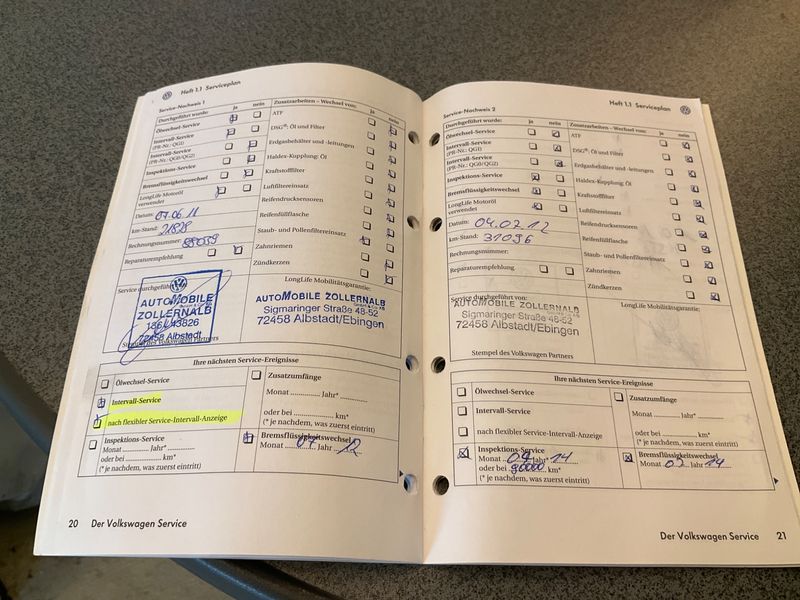 Heft 1.1 Serviceplan
Service-Nachweis 1
Durchgeführt wurde: ja nein
Ölwechsel-Service
Intervall-Service
(PR-Nr.: QG1)
Intervall-Service
(PR-Nr.: QG0/QG2)
Inspektions-Service
Bremsflüssigkeitswechsel
LongLife Motoröl
verwendet
Datum: 07.06.11
km-Stand: 21828
Rechnungsnummer:
Reparaturempfehlung
Zusatzarbeiten – Wechsel von: ja nein
ATF
DSG®: Öl und Filter
Erdgasbehälter und -leitungen
Haldex-Kupplung: Öl
Kraftstofffilter
Luftfiltereinsatz
Reifendrucksensoren
Reifenfüllflasche
Staub- und Pollenfiltereinsatz
Zahnriemen
Zündkerzen
Service durchgeführt
AUTOMOBILE
ZOLLERNALB
72458 Albstadt
Volkswagen Partners
LongLife Mobilitätsgarantie:
AUTOMOBILE ZOLLERNALB
GmbH & Co. KG
Sigmaringer Straße 48-52
72458 Albstadt/Ebingen
Ihre nächsten Service-Ereignisse
Ölwechsel-Service
Intervall-Service
nach flexibler Service-Intervall-Anzeige
Inspektions-Service
Monat ............ Jahr*............
oder bei ............ km*
(* je nachdem, was zuerst eintritt)
Zusatzumfänge
Monat ............ Jahr*............
oder bei ............ km*
(* je nachdem, was zuerst eintritt)
Bremsflüssigkeitswechsel
Monat 07 Jahr 12
20 Der Volkswagen Service
Heft 1.1 Serviceplan
Service-Nachweis 2
Durchgeführt wurde: ja nein
Ölwechsel-Service
Intervall-Service
(PR-Nr.: QG1)
Intervall-Service
(PR-Nr.: QG0/QG2)
Inspektions-Service
Bremsflüssigkeitswechsel
LongLife Motoröl
verwendet
Datum: 04.07.12
km-Stand: 31096
Rechnungsnummer:
Reparaturempfehlung
Zusatzarbeiten – Wechsel von: ja nein
ATF
DSG®: Öl und Filter
Erdgasbehälter und -leitungen
Haldex-Kupplung: Öl
Kraftstofffilter
Luftfiltereinsatz
Reifendrucksensoren
Reifenfüllflasche
Staub- und Pollenfiltereinsatz
Zahnriemen
Zündkerzen
Service durchgeführt von:
AUTOMOBILE ZOLLERNALB
GmbH & Co. KG
Sigmaringer Straße 48-52
72458 Albstadt/Ebingen
Stempel des Volkswagen Partners
LongLife Mobilitätsgarantie:
Ihre nächsten Service-Ereignisse
Ölwechsel-Service
Intervall-Service
nach flexibler Service-Intervall-Anzeige
Inspektions-Service
Monat 07 Jahr* 14
oder bei 90000 km*
(* je nachdem, was zuerst eintritt)
Zusatzumfänge
Monat ............ Jahr*............
oder bei ............ km*
(* je nachdem, was zuerst eintritt)
Bremsflüssigkeitswechsel
Monat 07 Jahr 14
Der Volkswagen Service 21